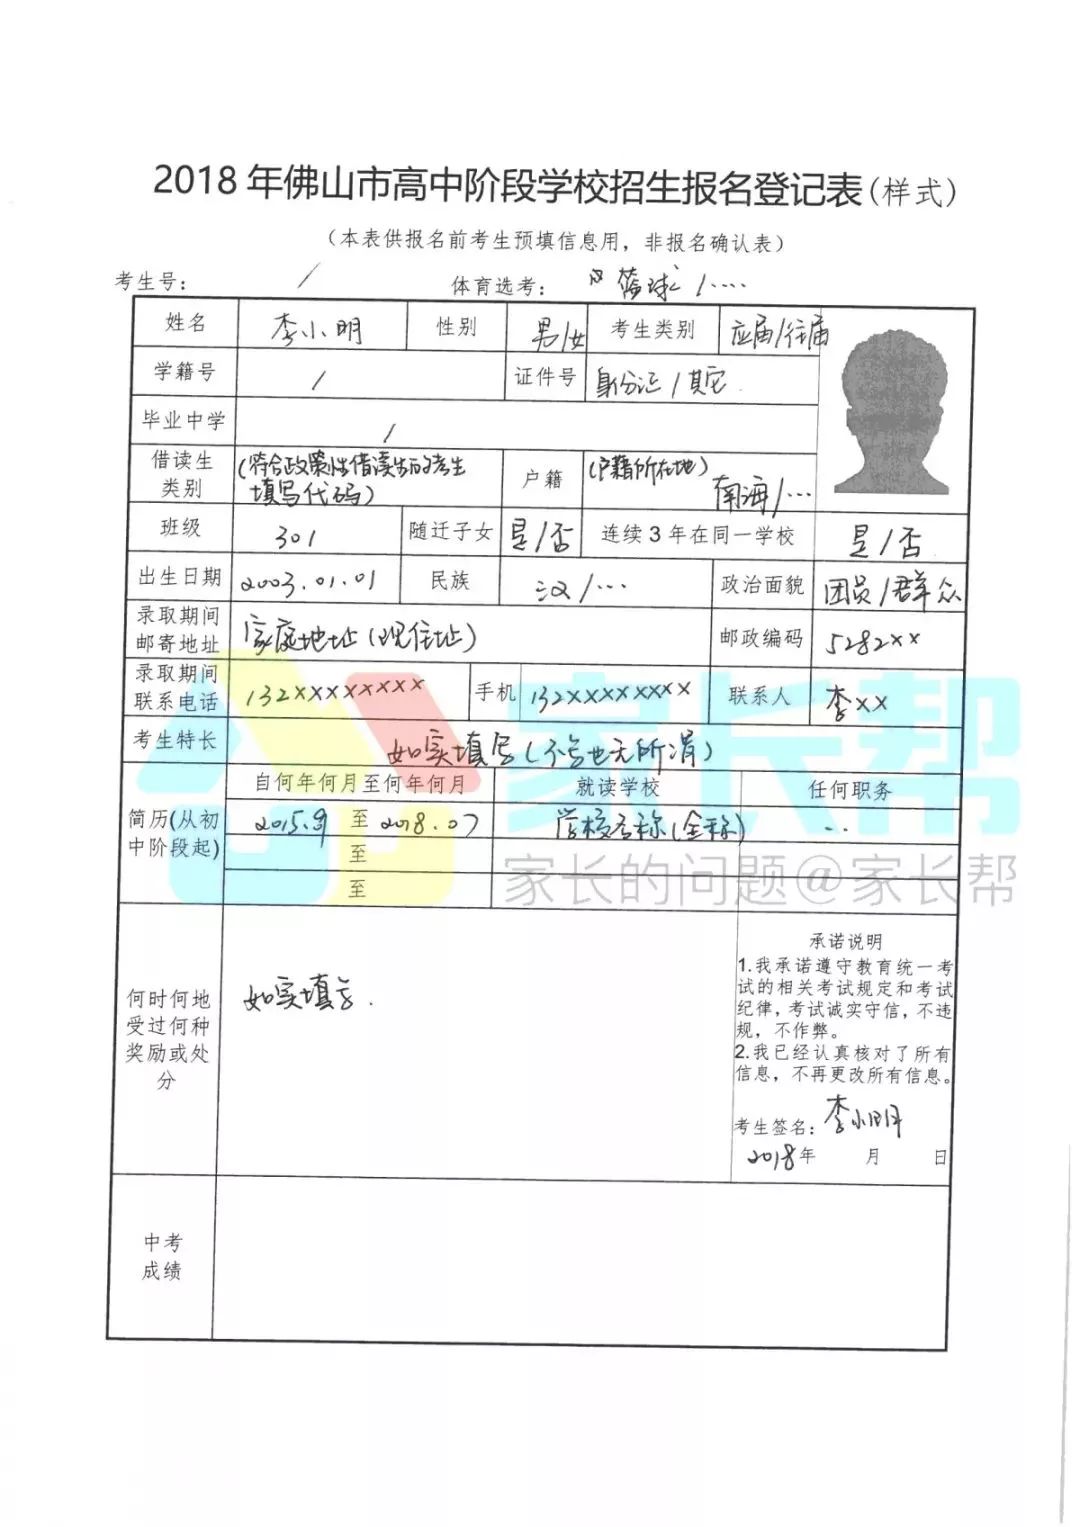 2018年佛山市高中阶段学校招生报名登记表(样式)
（本表供报名前考生预填信息用，非报名确认表）
考生号： / 体育选考： "篮球" /····
姓名 李小明 性别 男/女 考生类别 应届/往届
学籍号 / 证件号 身份证/其它
毕业中学 /
借读生类别 (符合政策性借读生的考生填写代码) 户籍 (户籍所在地) 南海/···
班级 301 随迁子女 是/否 连续3年在同一学校 是/否
出生日期 2003.01.01 民族 汉/··· 政治面貌 团员/群众
录取期间邮寄地址 家庭地址(现住址) 邮政编码 5282××
录取期间联系电话 132×××××××× 手机 132×××××××× 联系人 李××
考生特长 如实填写(不写也无所谓)
简历(从初中阶段起) 自何年何月至何年何月 就读学校 任何职务
2015.9 至 2018.07 学校名称(全称) ···
至
至
家长帮
家长的问题@家长帮
何时何地受过何种奖励或处分 如实填写.
承诺说明
1.我承诺遵守教育统一考
试的相关考试规定和考试
纪律，考试诚实守信，不违
规，不作弊。
2.我已经认真核对了所有
信息，不再更改所有信息。
考生签名：李小明
2018年 月 日
中考
成绩